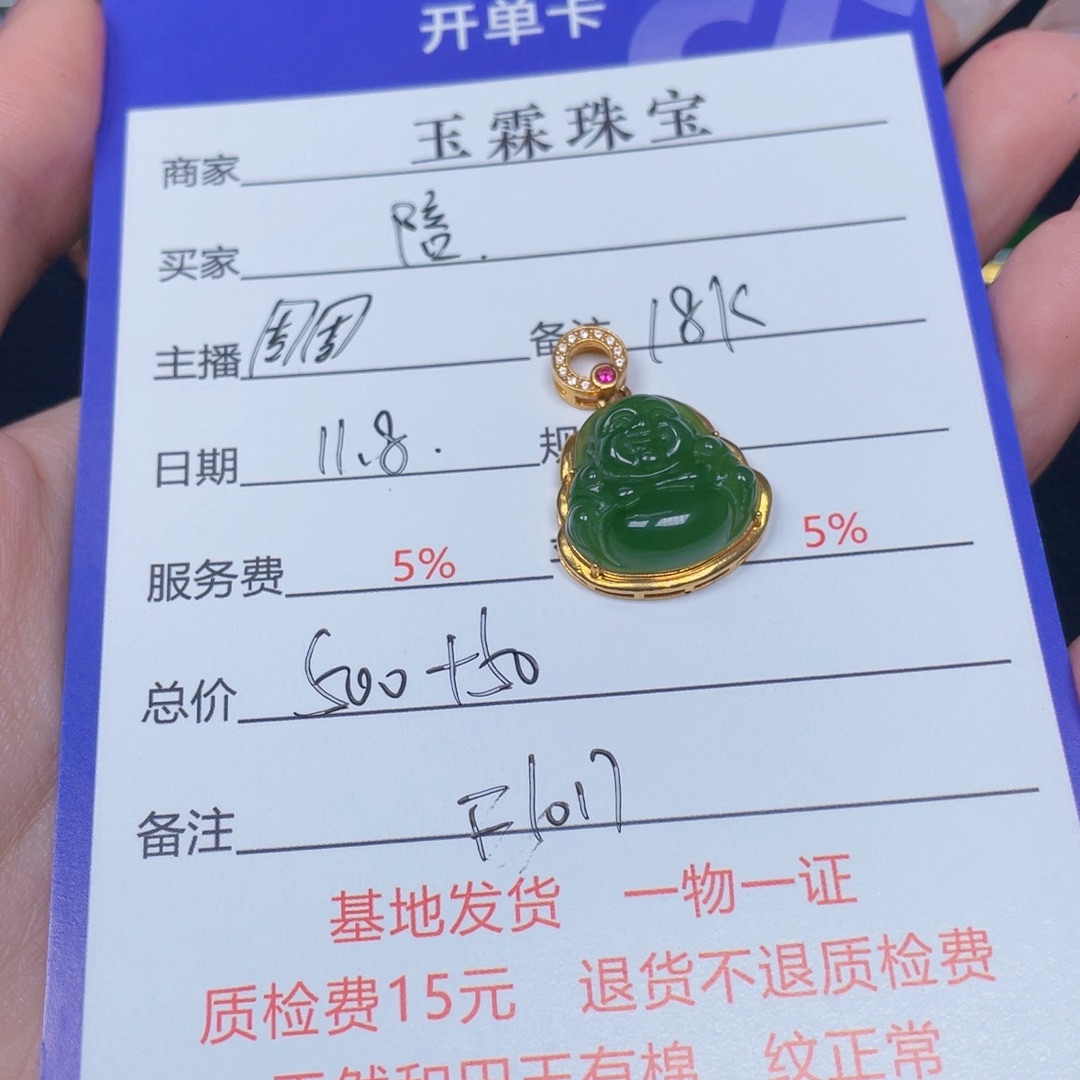 开单卡
商家 玉霖珠宝
买家 陪.
主播 周周 备注 18K
日期 11.8. 规
服务费 5% 5%
总价 500+50
备注 F1017
基地发货 一物一证
质检费15元 退货不退质检费
天然和田玉有棉 纹正常